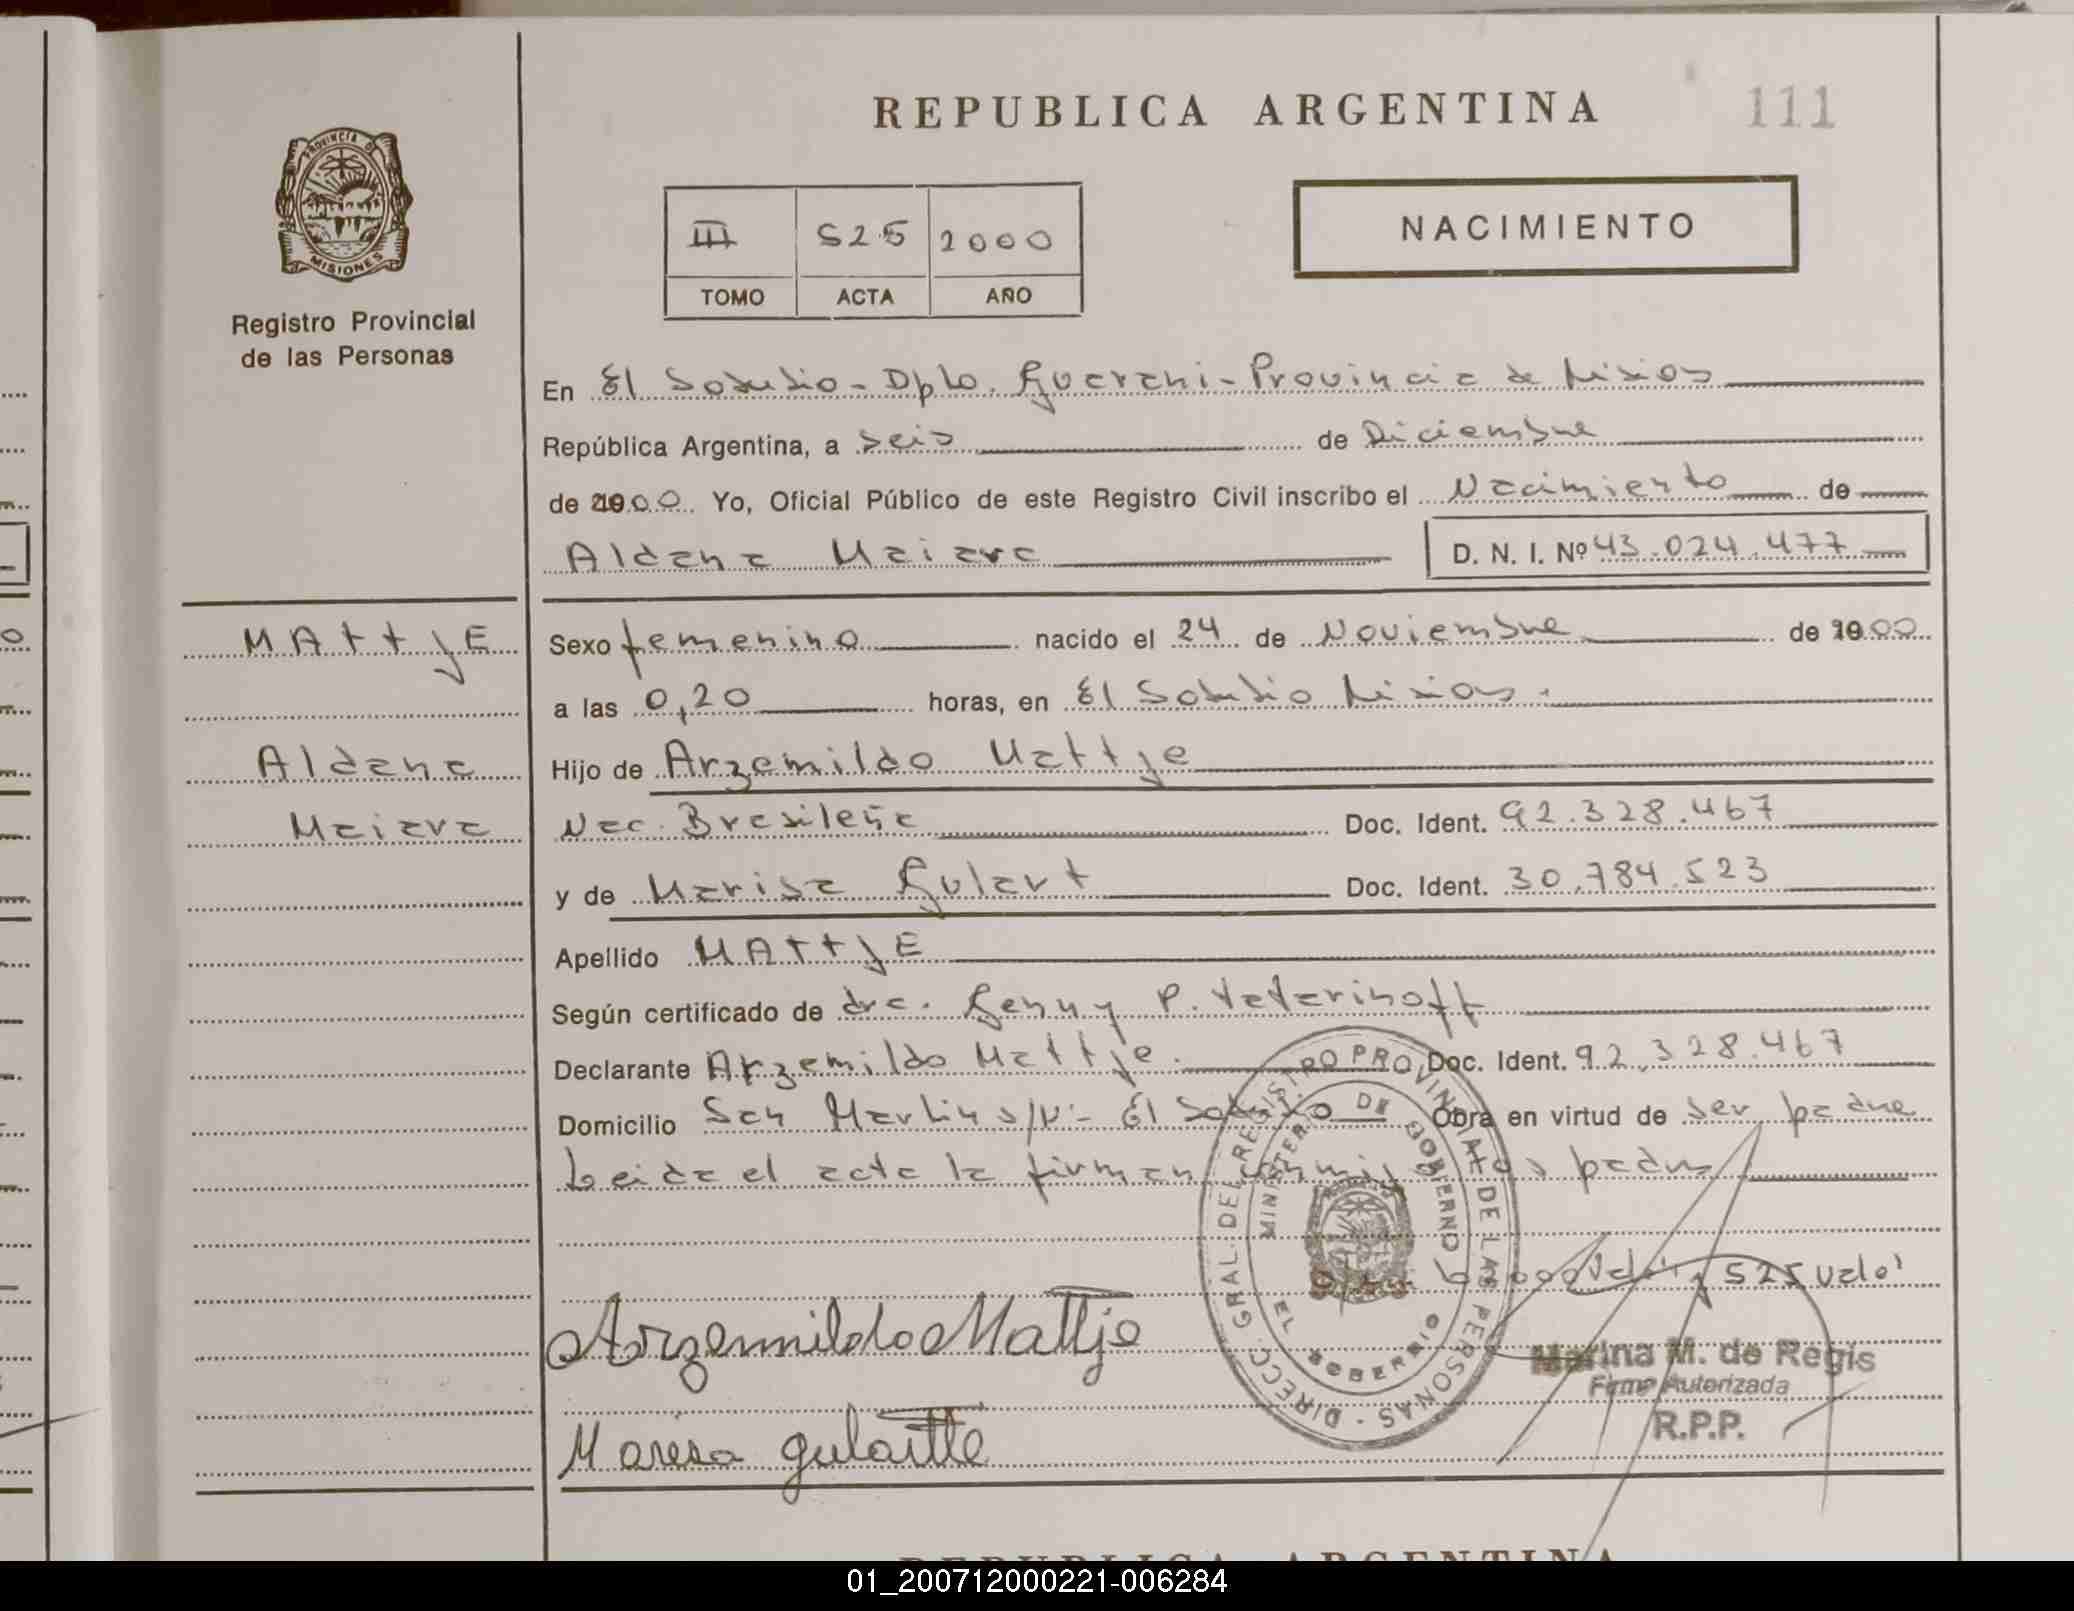 REPUBLICA ARGENTINA
111
PROVINCIA DE
MISIONES
Registro Provincial
de las Personas
III 525 2000
TOMO ACTA AÑO
NACIMIENTO
En El Soberbio - Dpto. Guarani - Provincia de Misiones
República Argentina, a seis de Diciembre
de 2000 Yo, Oficial Público de este Registro Civil inscribo el Nacimiento de
Aldana Maiara D. N. I. Nº 43.024.477
MATTJE
Aldana
Maiara
Sexo femenino nacido el 24 de Noviembre de 2000
a las 0,20 horas, en El Soberbio Misiones.
Hijo de Arzemildo Mattje
Nac. Brasileña Doc. Ident. 92.328.467
y de Marisa Gulart Doc. Ident. 30.784.523
Apellido MATTJE
Según certificado de dra. Genny P.
Declarante Arzemildo Mattje. Doc. Ident. 92.328.467
Domicilio San Martin s/Nº - El Soberbio Obra en virtud de ser padre
Leida el acta la firman conmigo los padres
2000 Vale y 525 Vale
Arzemildo Mattje
Maresa gulartte
DIRECC. GRAL. DEL REGISTRO PROVINCIAL DE LAS PERSONAS
MINISTERIO DE GOBIERNO
EL SOBERBIO
Marina M. de Regis
Firma Autorizada
R.P.P.
REPUBLICA ARGENTINA
01_200712000221-006284